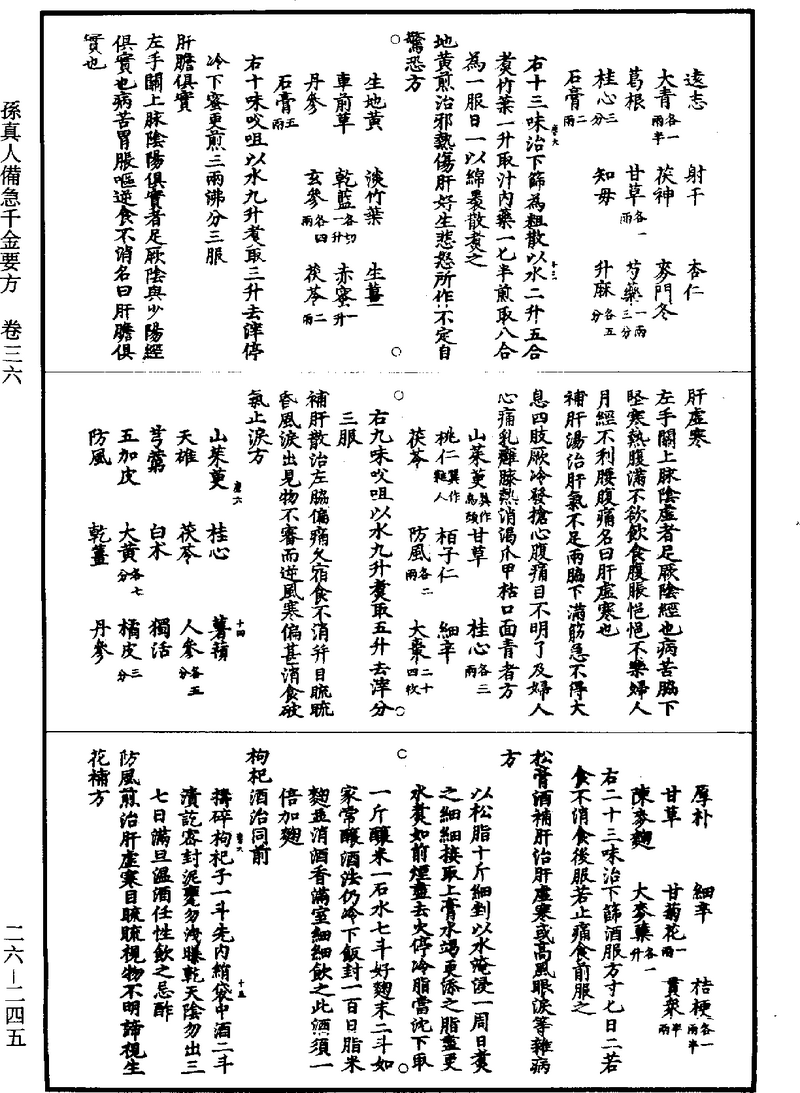 孫真人備急千金要方　卷三六
二六－二四五
遠志　射干　杏仁
大青各一兩半　茯神　麥門冬
葛根　甘草各一兩　芍藥一兩三分
桂心三分　知母　升麻各五分
石膏二兩
右十三味治下篩為粗散以水二升五合
煮竹葉一升取汁內藥一匕半煎取八合
為一服日一以綿裹散煮之
地黃煎治邪熱傷肝好生悲怒所作不定自
驚恐方
生地黃　淡竹葉　生薑
車前草　乾藍各切一升　赤蜜一升
丹參　玄參各四兩　茯苓二兩
石膏五兩
右十味㕮咀以水九升煮取三升去滓停
冷下蜜更煎三兩沸分三服
肝膽俱實
左手關上脉陰陽俱實者足厥陰與少陽經
俱實也病苦胃脹嘔逆食不消名曰肝膽俱
實也
肝虛寒
左手關上脉陰虛者足厥陰經也病苦脇下
堅寒熱腹滿不欲飲食腹脹悒悒不樂婦人
月經不利腰腹痛名曰肝虛寒也
補肝湯治肝氣不足兩脇下滿筋急不得大
息四肢厥冷發搶心腹痛目不明了及婦人
心痛乳癰膝熱消渴爪甲枯口面青者方
山茱萸異作烏頭　甘草　桂心各三兩
桃仁異作麯人　栢子仁　細辛
茯苓　防風各二兩　大棗二十四枚
右九味㕮咀以水九升煮取五升去滓分
三服
補肝散治左脇偏痛久宿食不消并目䀮䀮
昏風淚出見物不審而逆風寒偏甚消食破
氣止淚方
山茱萸　桂心　薯蕷
天雄　茯苓　人參各五分
芎藭　白朮　獨活
五加皮　大黃各七分　橘皮三分
防風　乾薑　丹參
厚朴　細辛　桔梗各一兩半
甘草　甘菊花一兩　貫衆半兩
陳麥麴　大麥蘗各一升
右二十三味治下篩酒服方寸七日二若
食不消食後服若止痛食前服之
松膏酒補肝治肝虛寒或高風眼淚等雜病
方
以松脂十斤細剉以水淹浸一周日煮
之細細接取上膏水竭更添之脂盡更
水煮如前煙盡去火停冷脂當沈下取
一斤釀米一石水七斗好麴末二斗如
家常釀酒法仍冷下飯封一百日脂米
麴並消酒香滿室細細飲之此酒須一
倍加麴
枸杞酒治同前
擣碎枸杞子一斗先內絹袋中酒二斗
漬訖密封泥甕勿洩曝乾天陰勿出三
七日滿旦溫酒任性飲之忌酢
防風煎治肝虛寒目䀮䀮視物不明諦視生
花補方